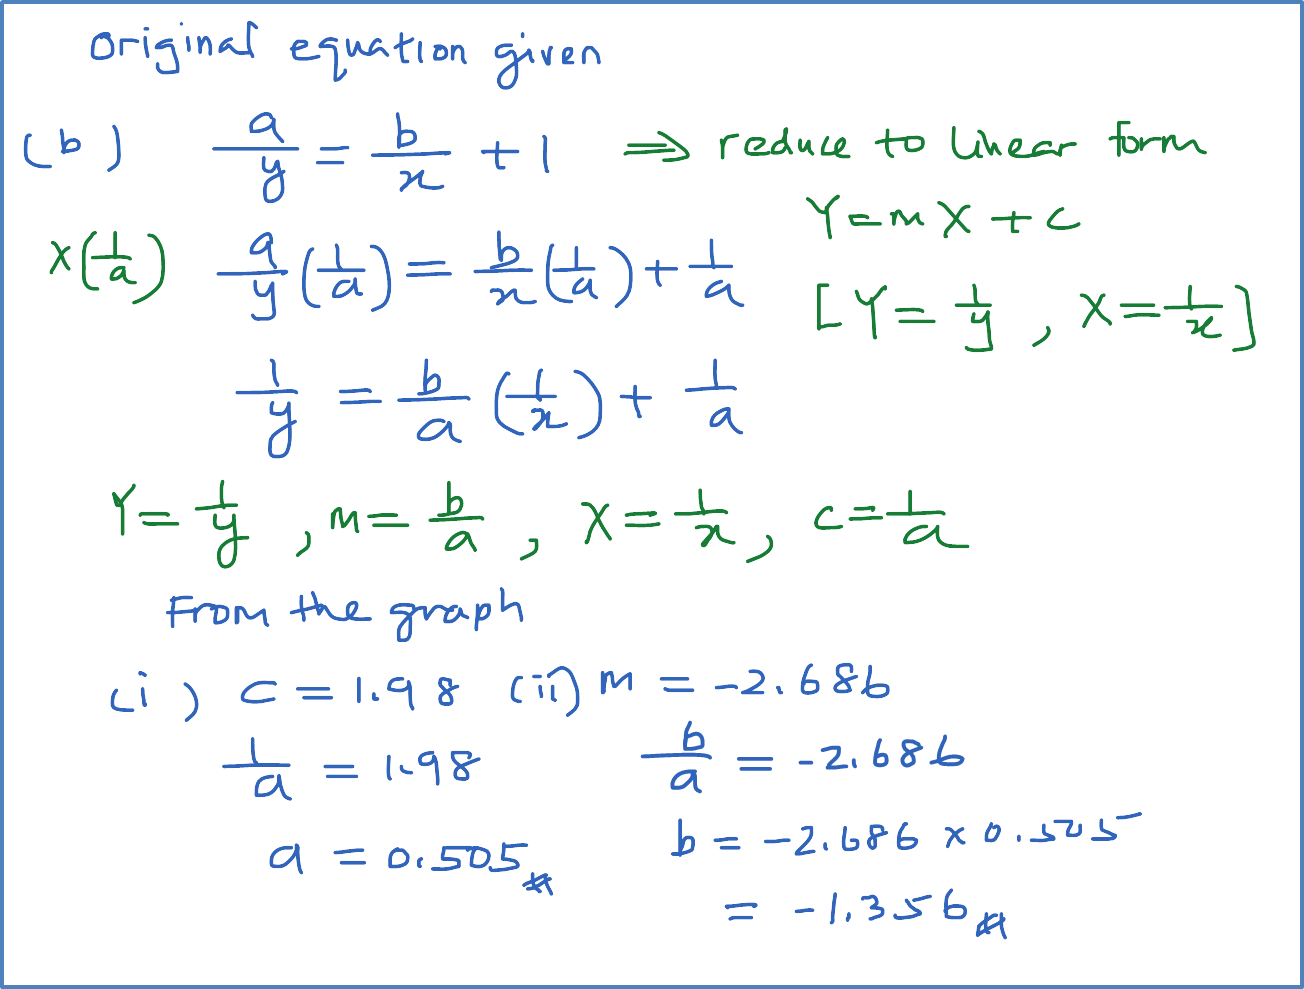 original equation given
(b) a/y = b/x + 1 ⇒ reduce to linear form
Y = mX + c
×(1/a) a/y (1/a) = b/x (1/a) + 1/a
[Y = 1/y , X = 1/x]
1/y = b/a (1/x) + 1/a
Y = 1/y , m = b/a , X = 1/x , c = 1/a
From the graph
(i) c = 1.98 (ii) m = -2.686
1/a = 1.98 b/a = -2.686
a = 0.505# b = -2.686 × 0.505
= -1.356#